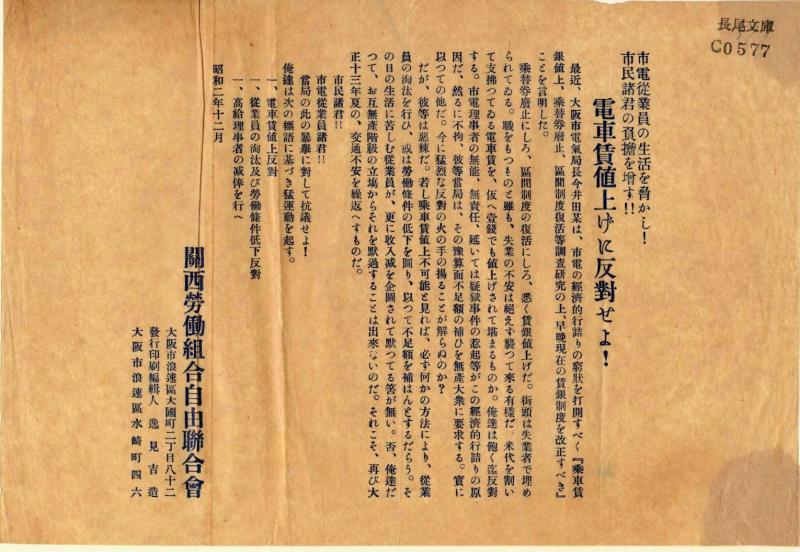 長尾文庫
C0577
市電從業員の生活を脅かし!
市民諸君の負擔を增す!!
電車賃値上げに反對せよ!
最近、大阪市電氣局長今井田某は、市電の經濟的行詰りの窮狀を打開すべく『乘車賃
銀値上、乘替券廢止、區間制度復活等調査研究の上、早晩現在の賃銀制度を改正すべき』
ことを言明した。
乘替券廢止にしろ、區間制度の復活にしろ、悉く賃銀値上げだ。街頭は失業者で埋め
られてゐる。職をもつものと雖も、失業の不安は絕えず襲つて來る有樣だ。米代を割い
て支拂つてゐる電車賃を、假へ壹錢でも値上げされて堪まるものか。俺達は飽く迄反對
する。市電理事者の無能、無責任、延いては疑獄事件の惹起等がこの經濟的行詰りの原
因だ、然るに不拘、彼等當局は、その豫算面不足額の補ひを無產大衆に要求する。實に
以つての他だ。今に猛烈な反對の火の手の揚ることが解らぬのか?
だが、彼等は惡辣だ。若し乘車賃値上不可能と見れば、必ず何かの方法により、從業
員の淘汰を行ひ、或は勞働條件の低下を圖り、以つて不足額を補はんとするだらう。そ
の日の生活に苦しむ從業員が、更に收入减を企圖されて默つてる筈が無い。否、俺達だ
つて、お互無產階級の立塲からそれを默過することは出來ないのだ。それこそ、再び大
正十三年夏の、交通不安を繰返へすものだ。
市民諸君!!
市電從業員諸君!!
當局の此の暴擧に對して抗議せよ!
俺達は次の標語に基づき猛運動を起す。
一、電車賃値上反對
一、從業員の淘汰及び勞働條件低下反對
一、高給理事者の减俸を行へ
昭和二年十二月
關西勞働組合自由聯合會
大阪市浪速區大國町二丁目八十二
發行印刷編輯人 逸見吉造
大阪市浪速區水崎町四六